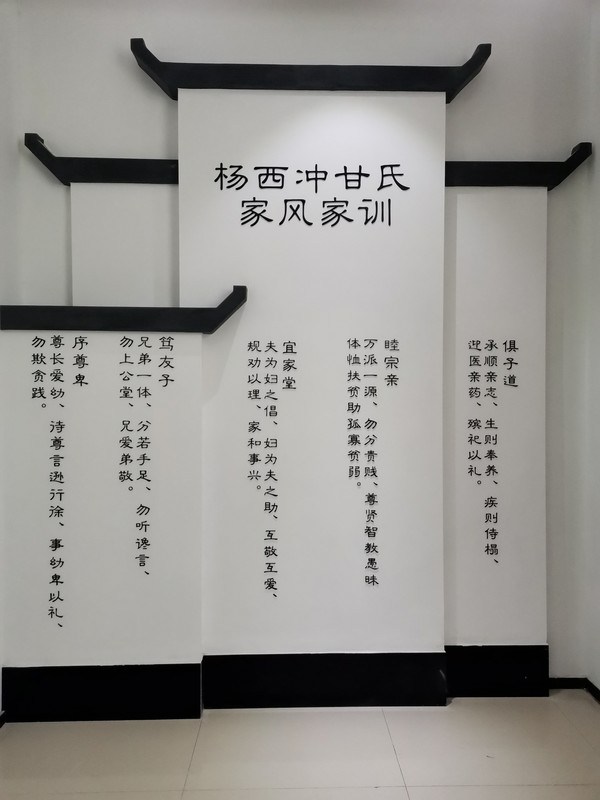 杨西冲甘氏
家风家训
俱子道
承顺亲志、生则奉养、疾则侍榻、
迎医亲药、殡祀以礼。
睦宗亲
万派一源、勿分贵贱、尊贤智教愚昧
体恤扶贫助孤寡贫弱。
宜家堂
夫为妇之倡、妇为夫之助、互敬互爱、
规劝以理、家和事兴。
笃友子
兄弟一体、分若手足、勿听谗言、
勿上公堂、兄爱弟敬。
序尊卑
尊长爱幼、待尊言逊行徐、事幼卑以礼、
勿欺贪贱。